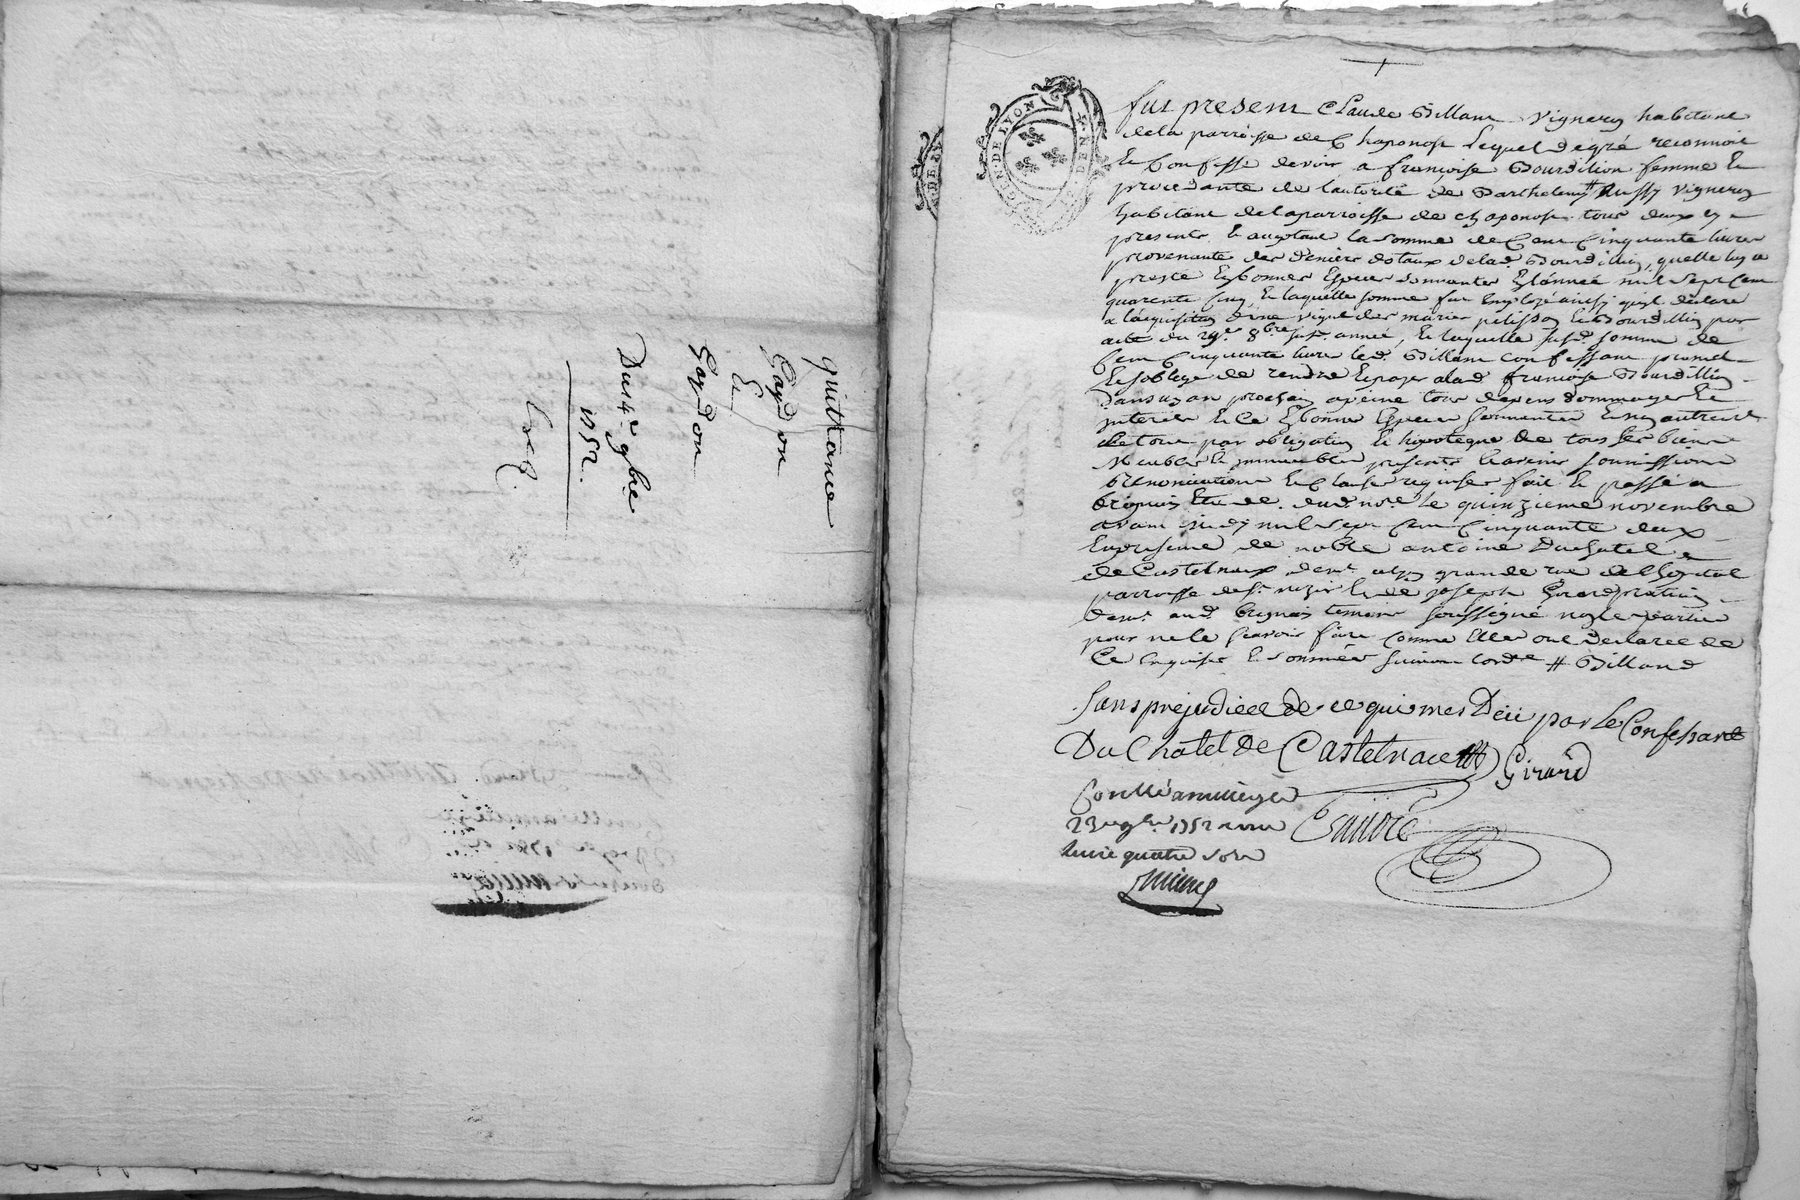 quittance
Gaydon
Et
Gaydon
Du 14e 9bre
1752.
GEN. DE LYON
fut present Claude Billand vigneron habitant
de la parroisse de Chaponost lequel de gré reconnoit
Et Confesse devoir a françoise Bourdillion femme Et
procedante de l'autorité de Barthelemy # vigneron
habitant de la parroisse de chaponost tous deux icy
presents Et aceptant la somme de Cent Cinquante livres
provenante des deniers dotaux de lad. Bourdillin, quelle luy a
presté En bonnes Especes sonnantes En lannée mil sept Cent
quarente Cinq, Et laquelle somme fut Employé ainsy quil declare
a laquisition d'une vigne des mariés pelisson Et Bourdillin par
acte du 29e 8bre susd. année, Et laquelle susd. somme de
Cent Cinquante livre led. Billand confessant promet
Et soblige de rendre Et payer a lad. françoise Bourdillin
Dans un an prochain a peine tous depens dommages Et
interets Et Ce En bonnes Especes sonnantes Et non autrement
Le tout par obligation Et hipoteque de tous ses biens
Meubles Et immeubles presents Et avenir soumissions
renonciations Et Clauses requises fait Et passé a
brignais Etude dud. nore. le quinzieme novembre
avant midy mil sept Cent Cinquante deux
En presence de noble antoine Duchatel
de Castelnaux demt. a lyon grande rue de lhopital
parroisse de st. nizier Et de joseph Girard praticien
demt. aud. brignais temoins soussigné non les parties
pour ne le scavoir faire Comme Elles ont declaree de
Ce Enquises Et sommées suivant lordce # Billand
Sans prejudice de ce qui m'est Deü par le Confessant
Du Chatel De Castelnau Girard
Conllé a millery le
23 9bre 1752 reçu
livre quatre sols